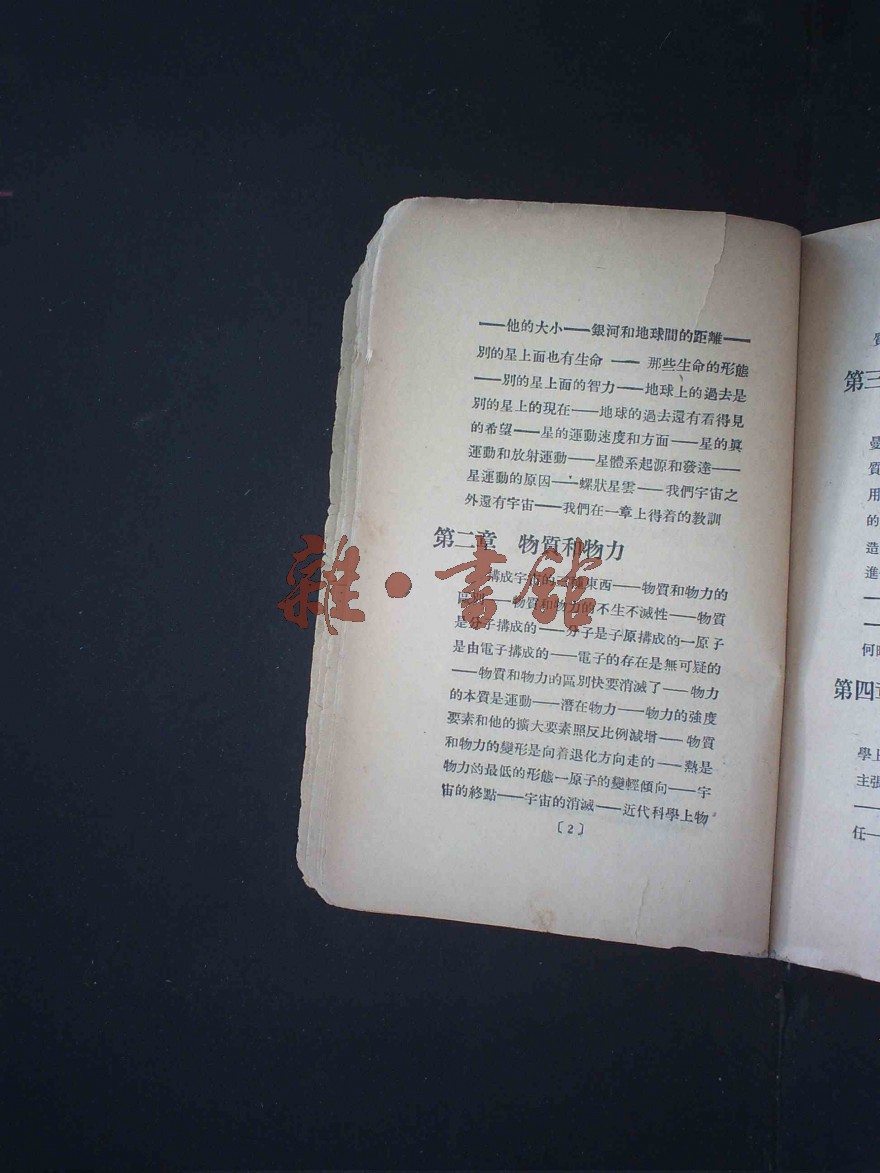 ——他的大小——銀河和地球間的距離——
別的星上面也有生命——那些生命的形態
——別的星上面的智力——地球上的過去是
別的星上的現在——地球的過去還有看得見
的希望——星的運動速度和方面——星的眞
運動和放射運動——星體系起源和發達——
星運動的原因——螺狀星雲——我們宇宙之
外還有宇宙——我們在一章上得着的教訓
第二章 物質和物力
構成宇宙的 東西——物質和物力的
區別——物質和物力的不生不滅性——物質
是分子搆成的——分子是子原搆成的—原子
是由電子搆成的——電子的存在是無可疑的
——物質和物力的區別快要消滅了——物力
的本質是運動——潛在物力——物力的強度
要素和他的擴大要素照反比例減增——物質
和物力的變形是向着退化方向走的——熱是
物力的最低的形態—原子的變輕傾向——宇
宙的終點——宇宙的消滅——近代科學上物
〔2〕
雜·書館
第三
用
的
造
進
何
第四章
學上
主張
任—